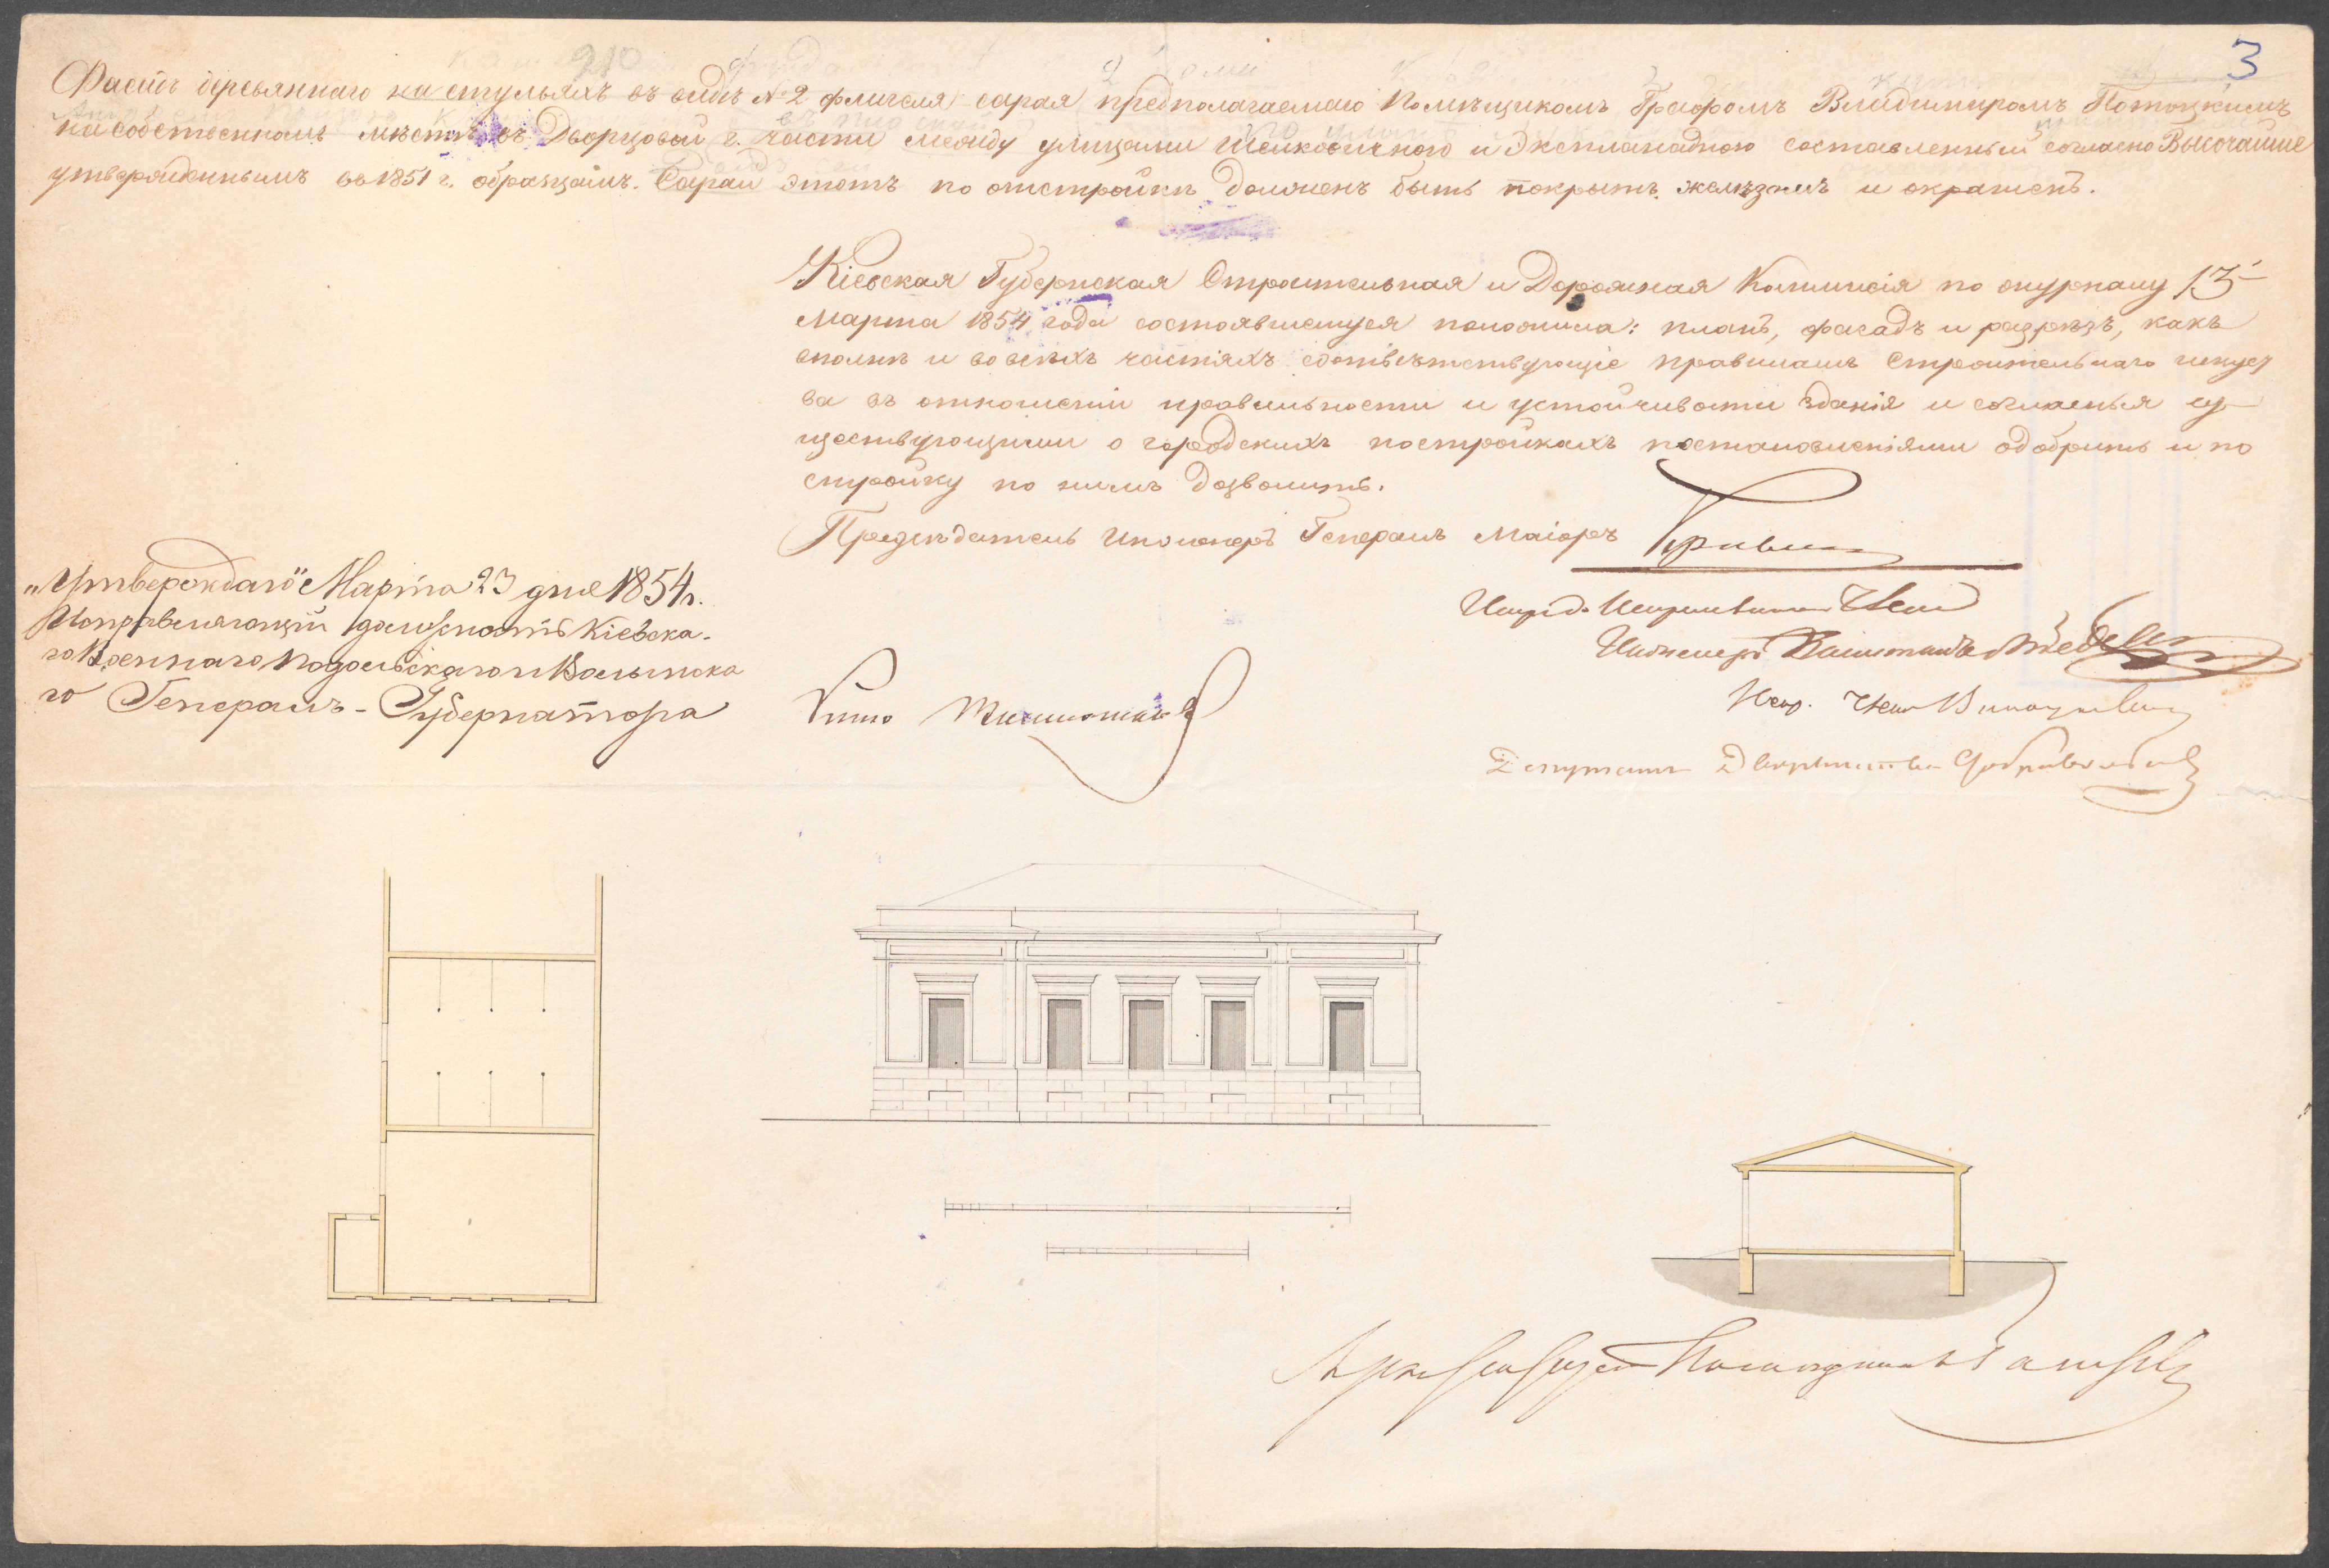 3
210
Фасадъ деревяннаго на стульяхъ въ видѣ № 2 флигеля сарая предполагаемаго Помѣщикомъ Графомъ Владимиромъ Потоцкимъ
на собственномъ мѣстѣ въ Дворцовой г. части между улицами Шелковичною и Эксплонадною составленный согласно Высочайше
утвержденнымъ въ 1851 г. образцамъ. Сарай этотъ по отстройкѣ долженъ быть покрытъ желѣзомъ и окрашенъ.
Кіевская Губернская Строительная и Дорожная Коммисія по журналу 13
Марта 1854 года состоявшемуся положила: планъ, фасадъ и разрѣзъ, какъ
вполнѣ и во всѣхъ частяхъ соотвѣтствующіе правиламъ Строительнаго искуст
ва въ отношеніи правильности и устойчивости зданія и согласныя су-
ществующими о городскихъ постройкахъ постановленіями одобрить и по
стройку по нимъ дозволить.
Предсѣдатель Инженеръ Генералъ Маіоръ
„Утверждаю" Марта 23 дня 1854 г.
Исправляющій должность Кіевска-
го Военнаго Подольскаго и Волынска
го Генералъ-Губернатора
Инженеръ Капитанъ
Депутатъ Дворянства
Архитекторъ